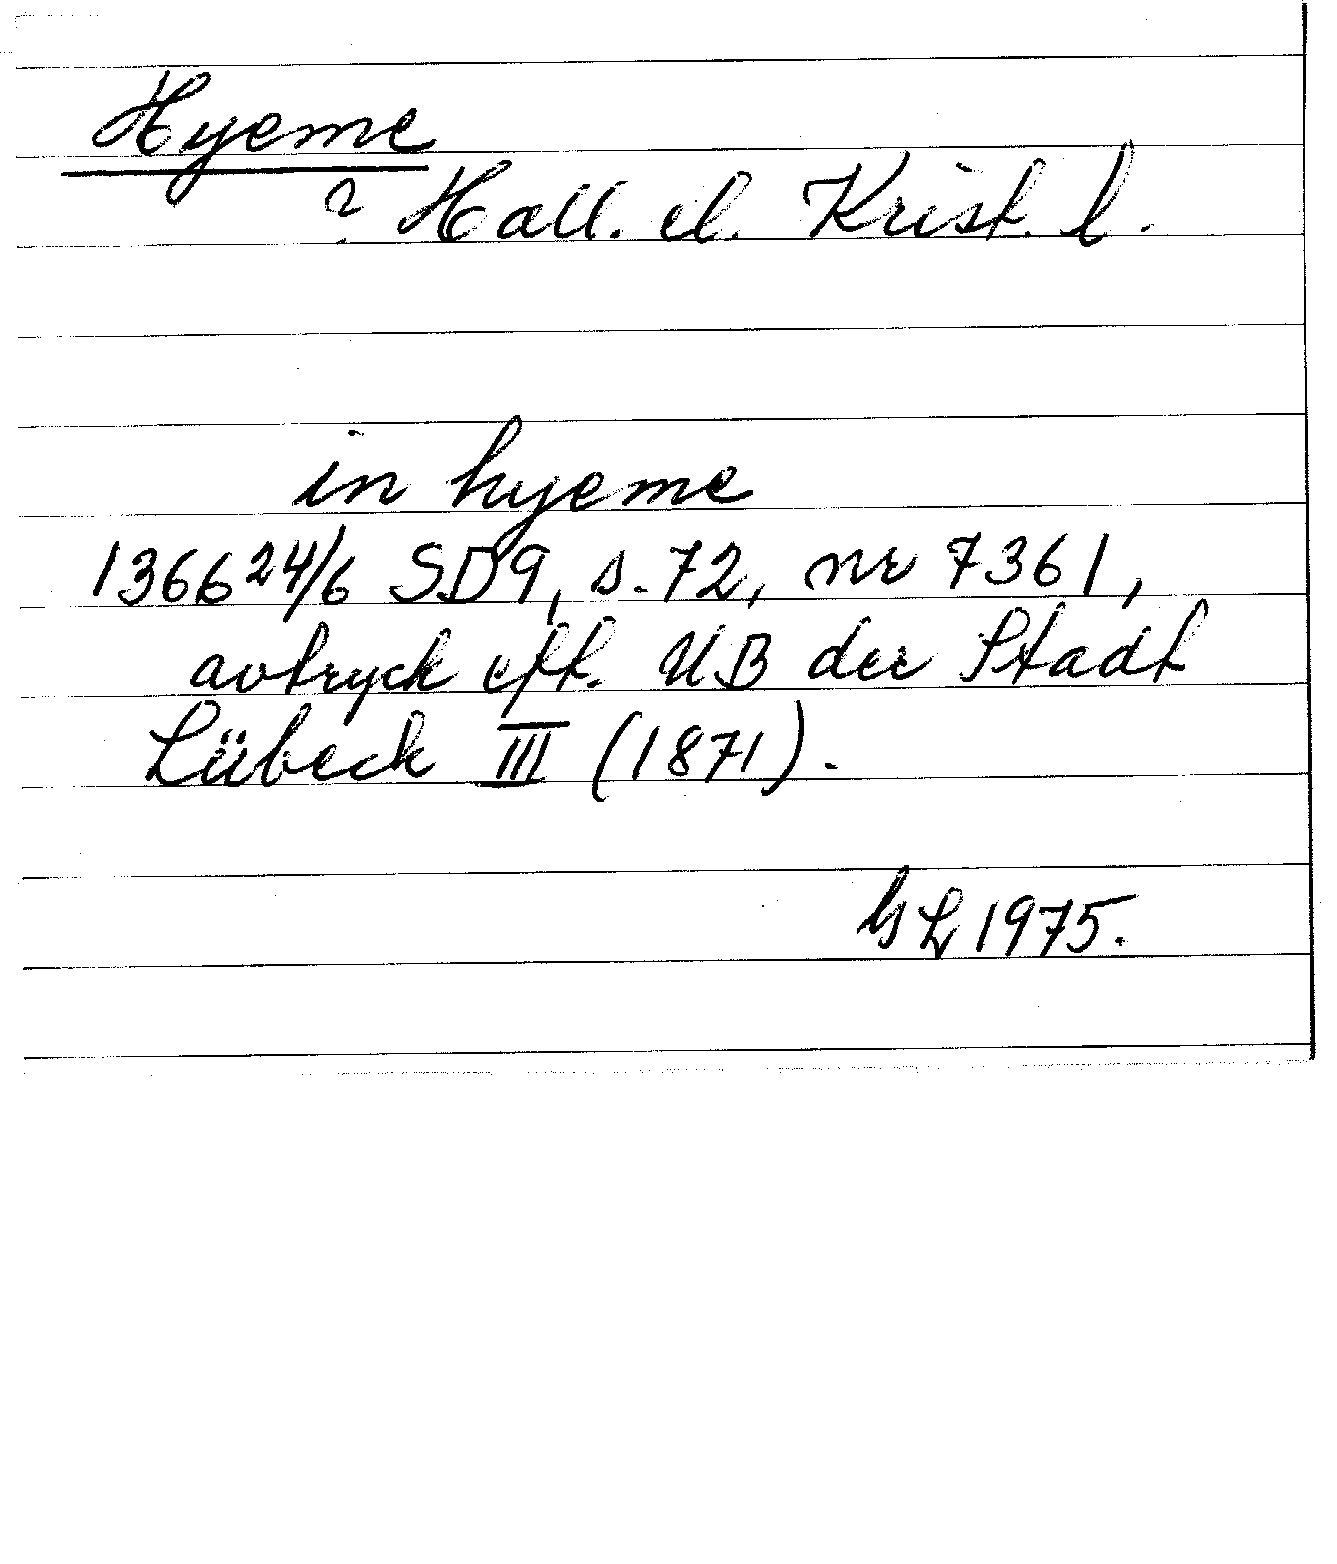 Hyeme
? Hall. el. Krist. l.
in hyeme
1366 24/6 SD9, s. 72, nr 7361,
avtryck eft. UB der Stadt
Lübeck III (1871).
GL 1975.